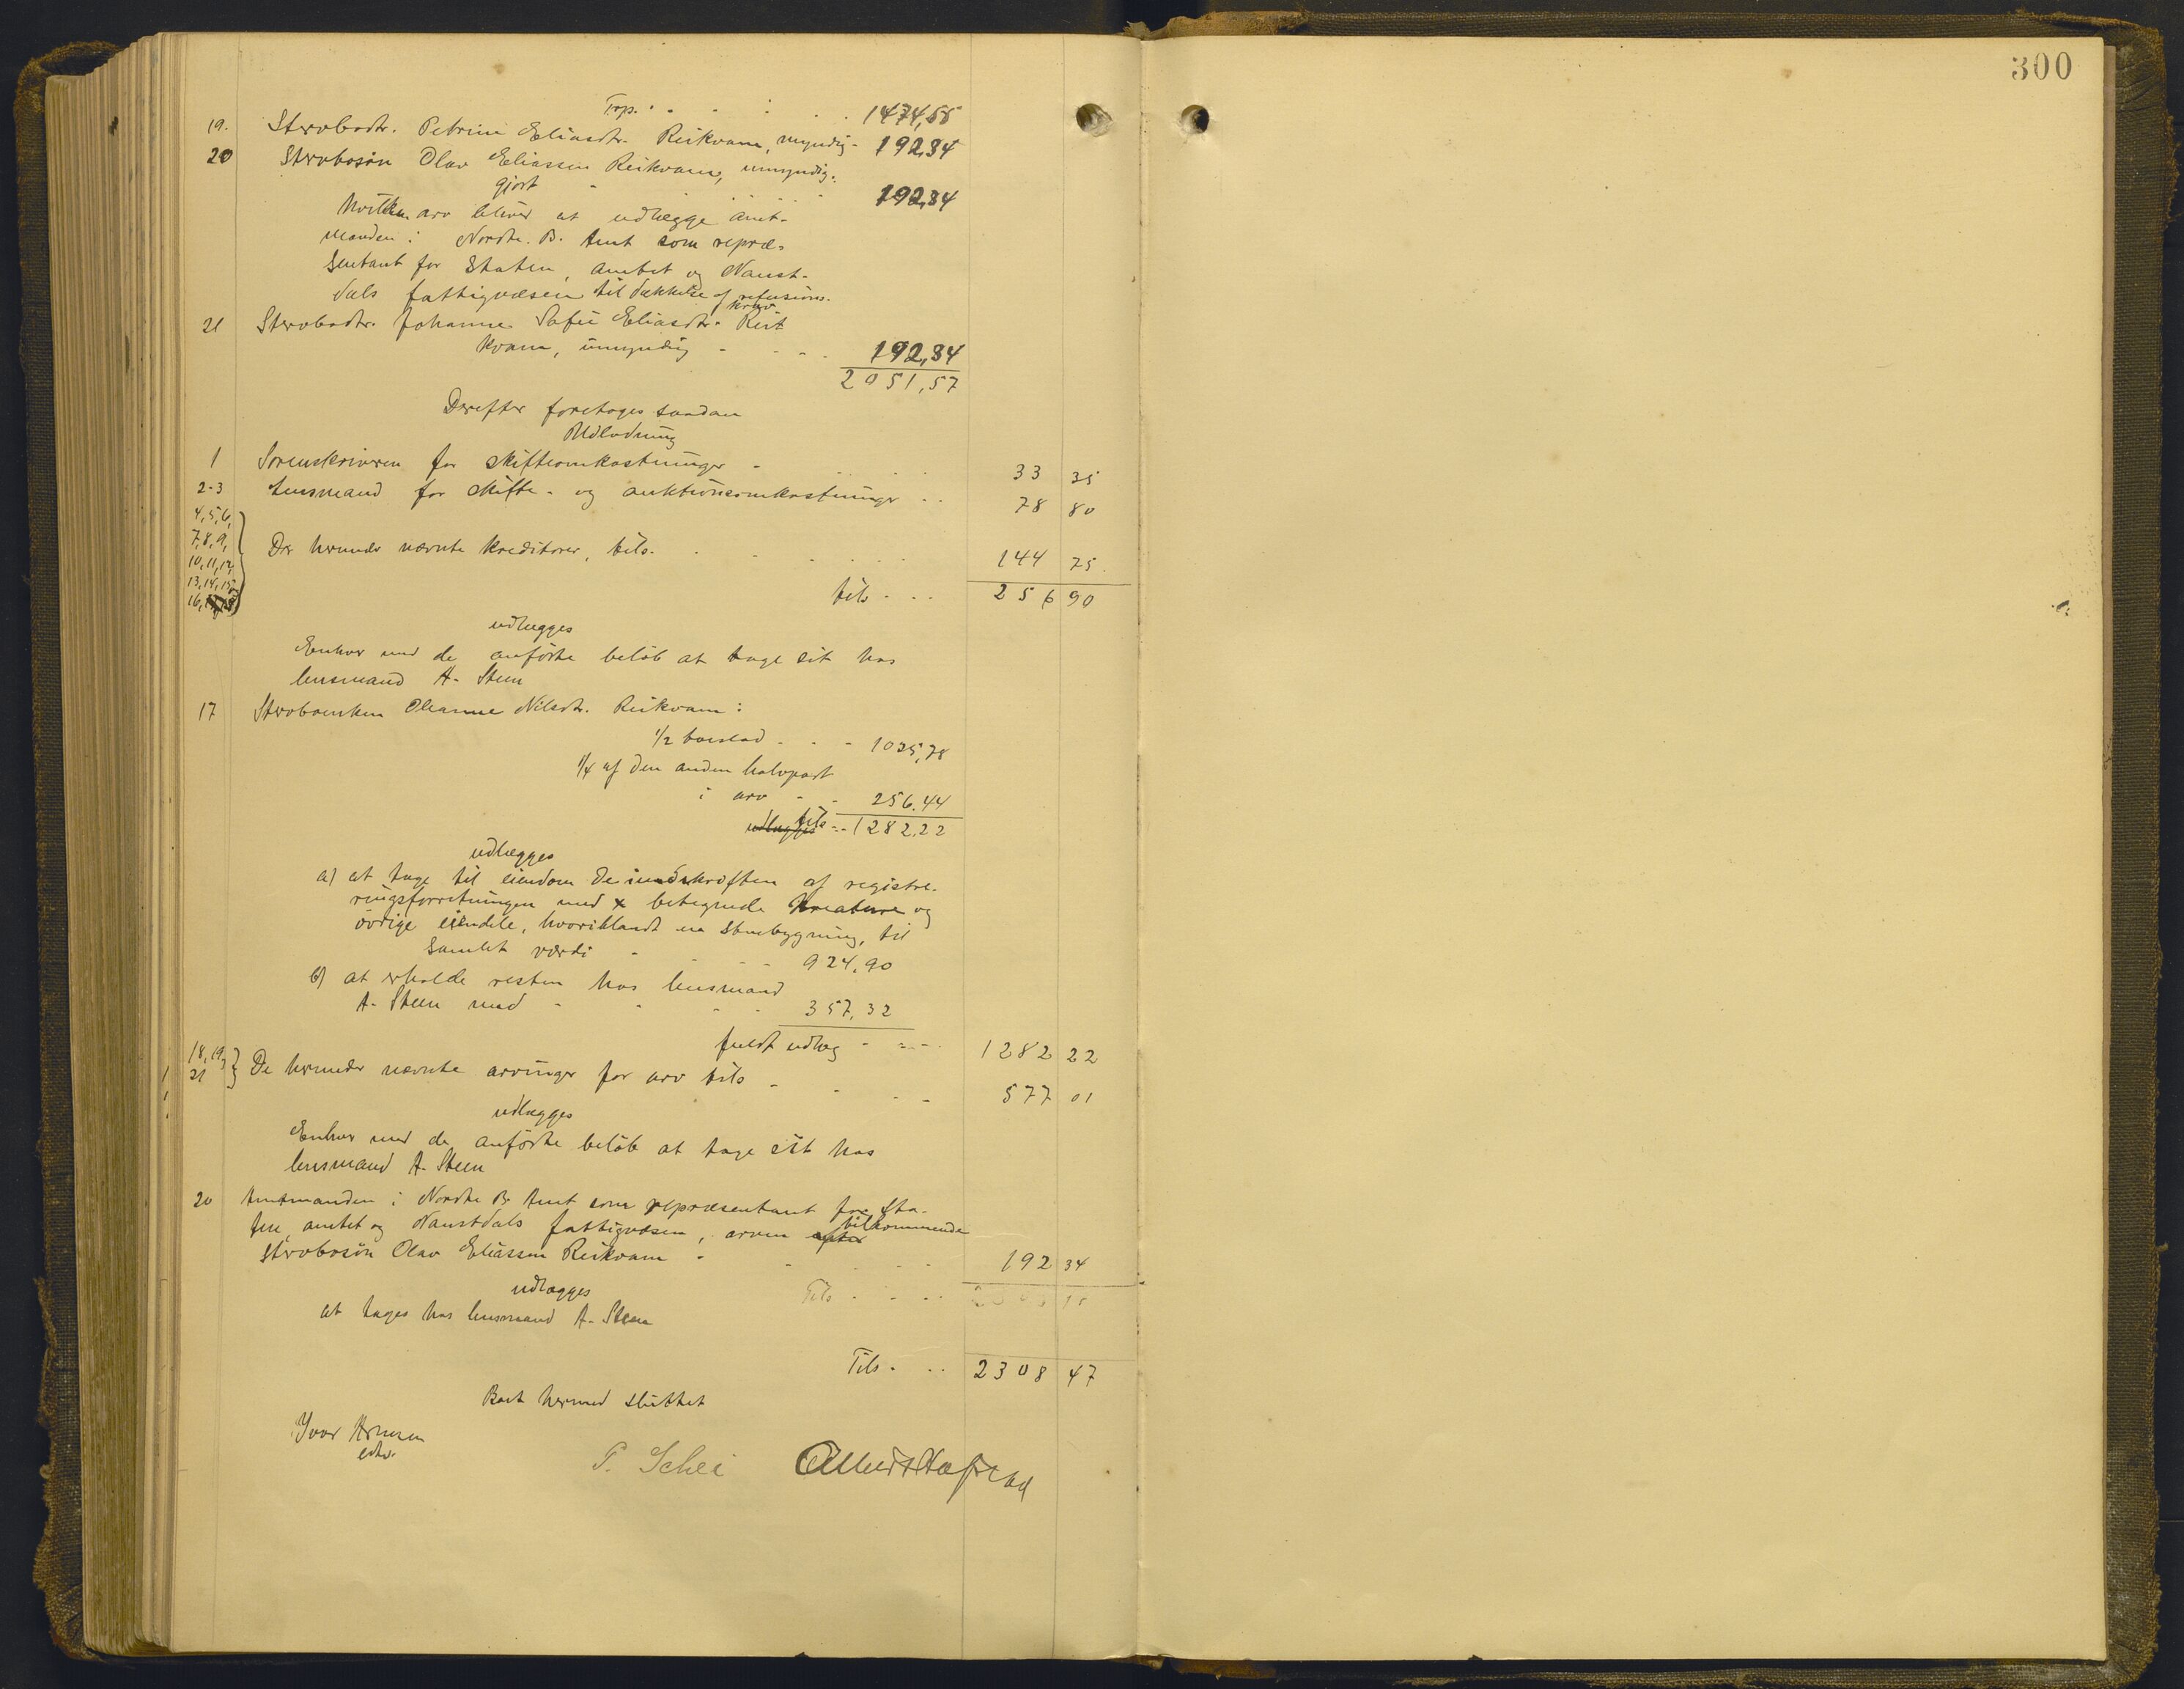 300
Trp. 1474,55
19. Stervbodtr. Petrine Eliasdtr. Reikvam, myndig - 192,34
20 Stervbosön Olav Eliassen Reikvam, umyndig-
gjort - 192,34
hvilken arv bliver at udlægge amt-
manden i Nordre B. Amt som repræ-
sentant for Staten, amtet og Naust-
dals fattigvæsen til dækkelse af refusions-
krav
21 Stervbodtr. Johanne Sofie Eliasdtr. Reik
kvam, umyndig - 192,34
2051,57
Derefter foretoges saadan
Udlodning
1 Sorenskriveren for skifteomkostninger - 33 35
2-3 Lensmand for skifte- og auktionsomkostninger .. 78 80
4,5,6,
7,8,9,
10,11,12,
13,14,15,
16,
De herunder nævnte kreditorer, tils. 144 75
tils - .. 256 90
udlægges
Enhver med de anförte belöb at tage sit hos
lensmand A. Steen
17 Stervboenken Oleanne Nilsdtr. Reikvam:
1/2 boeslod - 1025,78
1/4 af den anden halvpart
i arv - - 256.44
udlægges tils -- 1282,22
udlægges
a) at tage til eiendom de i udskriften af registre-
ringsforretningen med x betegnede kreature og
övrige eiendele, hvoriblandt en stuebygning, til
samlet værdi - 924,90
b) at erholde resten hos lensmand
A. Steen med - 357,32
fuldt udlæg - 1282 22
18,19,
21 De herunder nævnte arvinger for arv tils - 577 01
udlægges
Enhver med de anförte belöb at tage sit hos
lensmand A. Steen
20 Amtmanden i Nordre B. Amt som repræsentant for Sta-
ten, amtet og Naustdals fattigvæsen, arven efter tilkommende
stervbosön Olav Eliassen Reikvam - 192 34
udlægges Tils
at tages hos lensmand A. Steen
Tils - .. 2308 47
Boet hermed sluttet
Ivar
edsv.
P. Schei